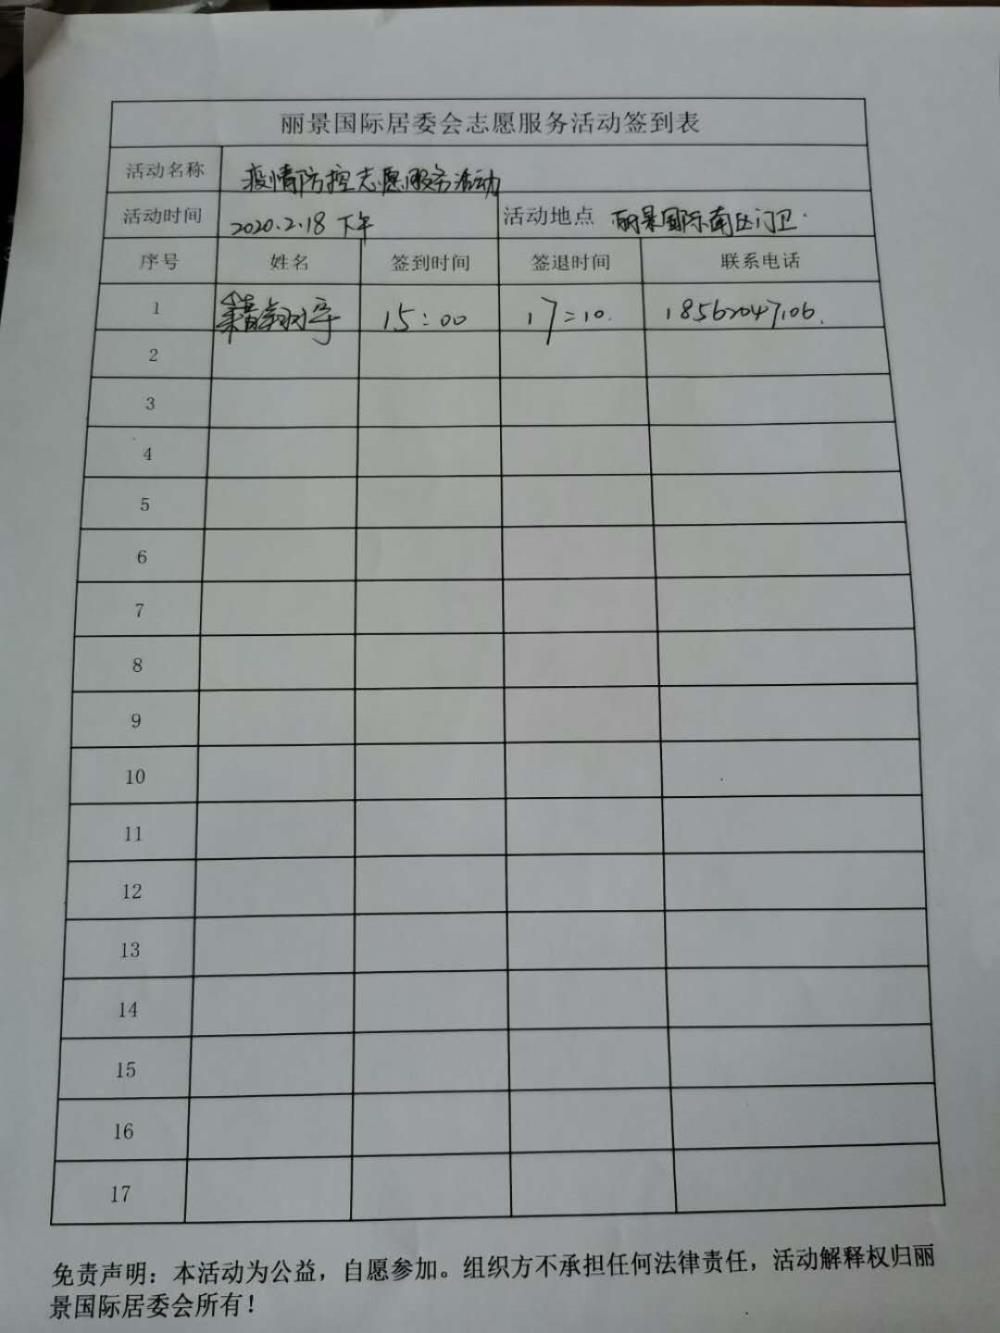 丽景国际居委会志愿服务活动签到表
活动名称 疫情防控志愿服务活动
活动时间 2020.2.18 下午 活动地点 丽景国际南区门卫
序号 姓名 签到时间 签退时间 联系电话
1 15:00 17:10. 18562047106.
2
3
4
5
6
7
8
9
10
11
12
13
14
15
16
17
免责声明：本活动为公益，自愿参加。组织方不承担任何法律责任，活动解释权归丽
景国际居委会所有！